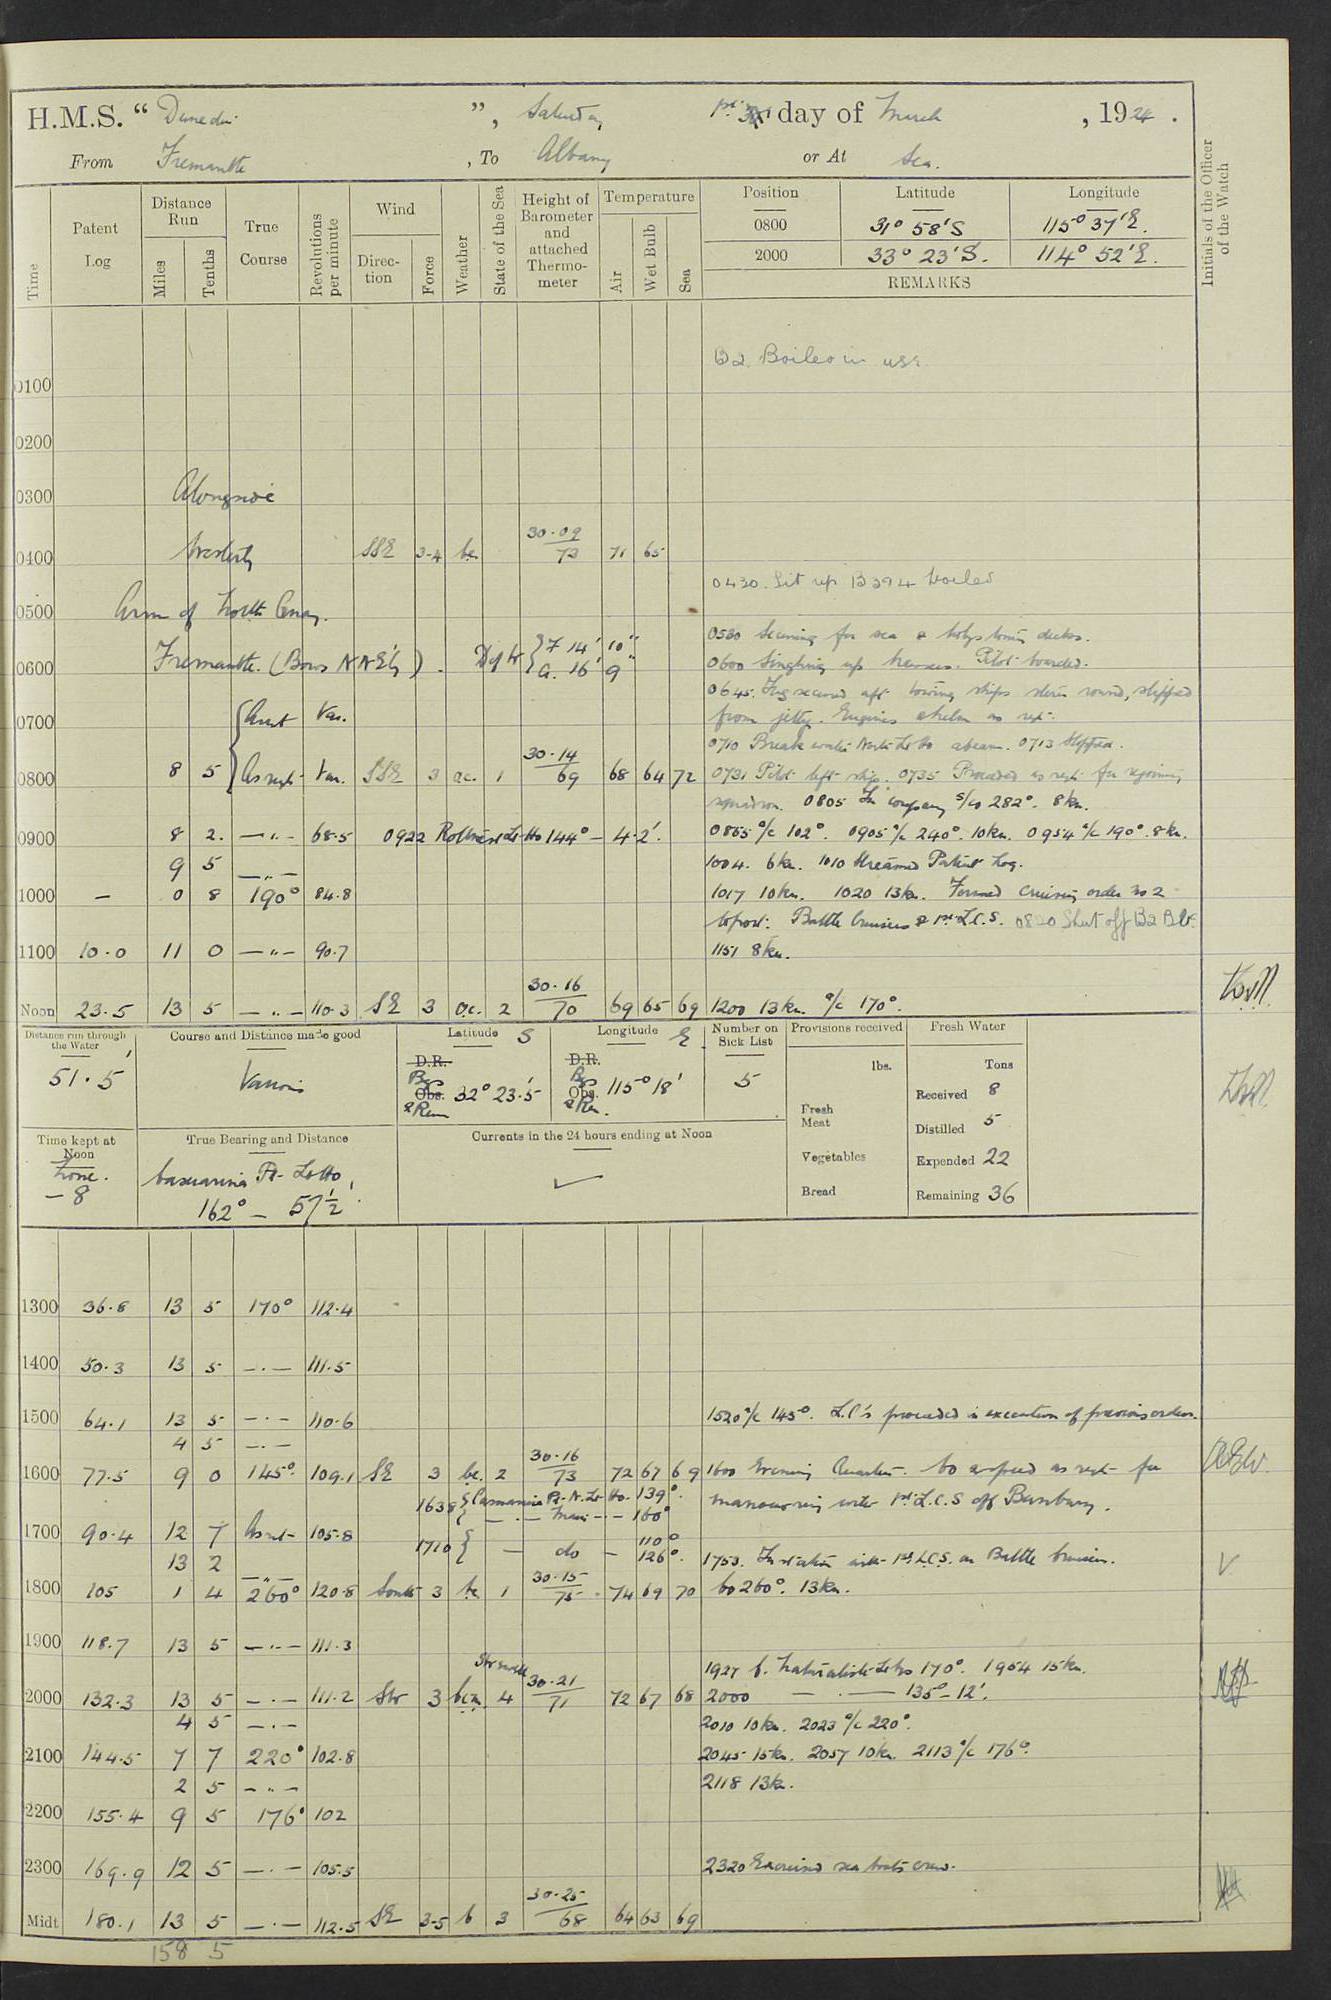 H.M.S. “ Dunedin ”, Saturday 1st day of March , 1924 .
From Fremantle , To Albany or At Sea.
Time
Patent Log
Distance Run
Miles
Tenths
True Course
Revolutions per minute
Wind
Direc-tion
Force
Weather
State of the Sea
Height of Barometer and attached Thermo-meter
Temperature
Air
Wet Bulb
Sea
Position Latitude Longitude
0800 31° 58' S 115° 37' E.
2000 33° 23' S. 114° 52' E.
REMARKS
Initials of the Officer of the Watch
B2 Boiler in use.
0100
0200
0300 Alongside
0400 Westerly SSE 3-4 bc 30·09 73 71 65
0430. Lit up B3 & 4 boiler
0500 Arm of North Quay.
0530 Securing for sea &
0600 Fremantle. (Bows NNE'ly). Dft { F 14' 10" A. 16' 9"
0600 Singling up hawsers. Pilot boarded.
0645. Tug secured aft towing ships stern round, slipped
0700 { As rqst Var.
from jetty. Engines & helm as reqt.
0710 Break water North Lt Ho abeam. 0713 Stopped.
0800 8 5 As reqst Var. SSE 3 oc. 1 30·14 69 68 64 72 0731 Pilot left ship. 0735 Proceeded as reqt for rejoining
squadron. 0805 In company s/co 282°. 8 kn.
0900 8 2. —"— 68·5 0922 Rottnest Lt Ho 144° — 4·2'. 0855 a/c 102°. 0905 a/c 240°. 10 kn. 0954 a/c 190°. 8 kn.
9 5 —"— 1004. 6 kn. 1010 Streamed Patent Log.
1000 — 0 8 190° 84·8 1017 10 kn. 1020 13 kn. Formed cruising order No 2
Battle Cruisers & 1st L.C.S. 0820 Shut off B2 Blr.
1100 10·0 11 0 —"— 90·7 1151 8 kn.
Noon 23·5 13 5 —"— 110·3 SE 3 oc. 2 30·16 70 69 65 69 1200 13 kn. a/c 170°.
Distance run through the Water
51·5'
Course and Distance made good
Various
Latitude S
D.R. Obs. Bgs & Run 32° 23·5'
Longitude E
D.R. Obs. Bgs & Rn. 115° 18'
Number on Sick List
5
Provisions received
lbs.
Fresh Meat
Vegetables
Bread
Fresh Water
Tons
Received 8
Distilled 5
Expended 22
Remaining 36
Time kept at Noon
Zone. – 8
True Bearing and Distance
Casuarina Pt Lt Ho,
162° — 57½'
Currents in the 24 hours ending at Noon
1300 36·8 13 5 170° 112·4
1400 50·3 13 5 —·— 111·5
1500 64·1 13 5 —·— 110·6 1520 a/c 145°. L.C's proceeded in execution of previous orders.
4 5 —·—
1600 77·5 9 0 145° 109·1 SE 3 bc. 2 30·16 73 72 67 69 1600 Evening Quarters. Co & speed as reqt for
1638 { Casuarina Pt. N. Lt Ho. 139°. manœuvring with 1st L.C.S off Bunbury.
—·— Main —·— 160°
1700 90·4 12 7 As rqt 105·8
1710 { — do — 110° 126°.
13 2 —"— 1753. In station with 1st L.C.S. on Battle Cruisers.
1800 105 1 4 260° 120·8 South 3 bc 1 30·15 75 74 69 70 Co 260°. 13 kn.
1900 118·7 13 5 —"— 111·3
1927 C. Naturaliste Lt Ho 170°. 1954 15 kn.
2000 132·3 13 5 —·— 111·2 Sth 3 bcm. 4 30·21 71 72 67 68 2000 —·— 135° – 12'.
4 5 —·— 2010 10 kn. 2023 a/c 220°.
2100 144·5 7 7 220° 102·8 2045 15 kn. 2057 10 kn. 2113 a/c 176°.
2 5 —"— 2118 13 kn.
2200 155·4 9 5 176° 102
2300 169·9 12 5 —·— 105·5 2320 Exercised sea boats crew.
Midt 180·1 13 5 —·— 112·5 SE 3-5 b 3 30·25 68 64 63 69
158 5